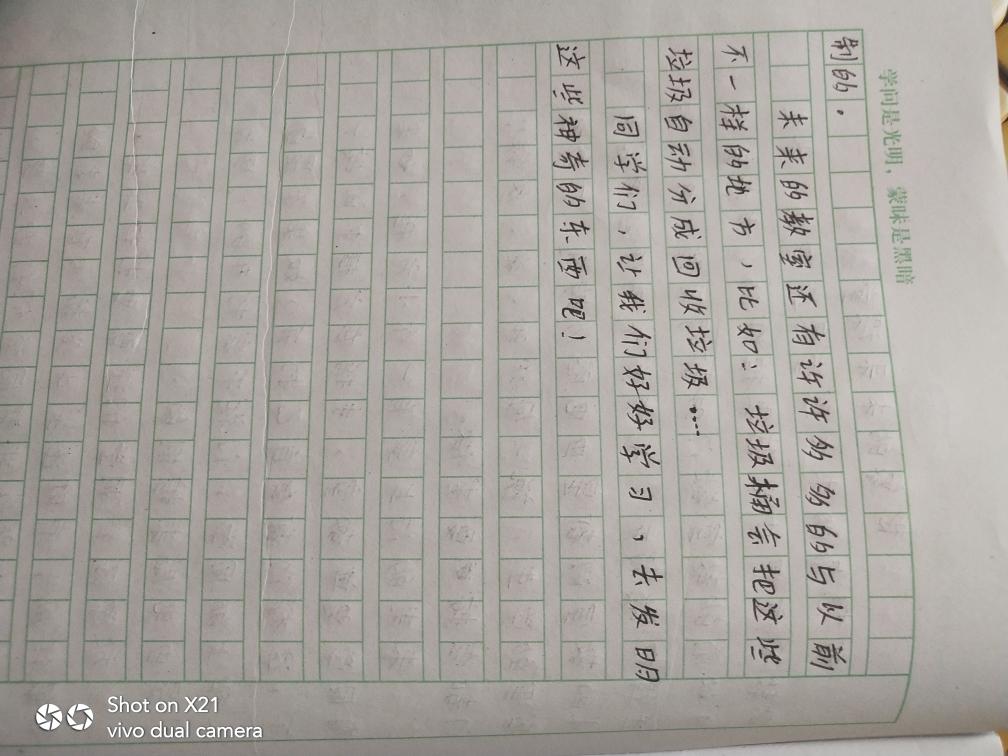 学问是光明，蒙昧是黑暗
制的。
未来的教室还有许许多多的与以前
不一样的地方，比如：垃圾桶会把这些
垃圾自动分成回收垃圾……
同学们，让我们好好学习，去发明
这些神奇的东西吧！
Shot on X21
vivo dual camera